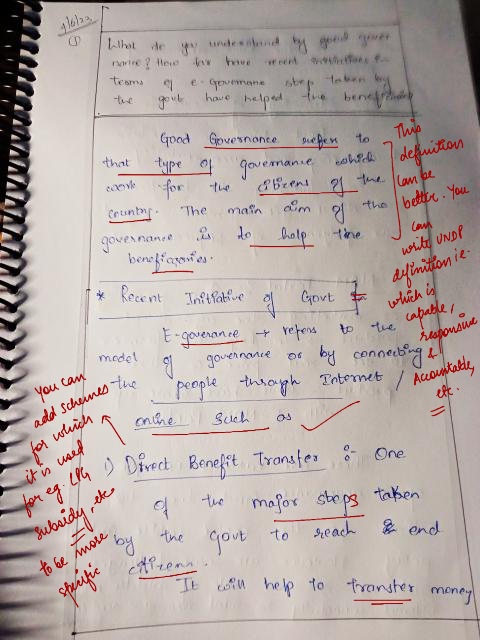 9/6/22
①
What do you understand by good gover
nance? How far have recent initiatives in
terms of e-Governance step taken by
the govt have helped the beneficiaries
Good Governance refers to
that type of governance which
work for the citizens of the
country. The main aim of the
governance is to help the
beneficiaries.
This
definition
can be
better. You
can
write UNDP
definition i.e-
which is
capable,
responsive
&
Accountable,
etc.
* Recent Initiative of Govt
E-goverance → refers to the
model of governance or by connecting
the people through Internet /
online such as
You can
add schemes
for which
it is used
for eg. LPG
subsidy, etc
to be more
specific
1) Direct Benefit Transfer :- One
of the major steps taken
by the Govt to reach end
citizens.
It will help to transfer money